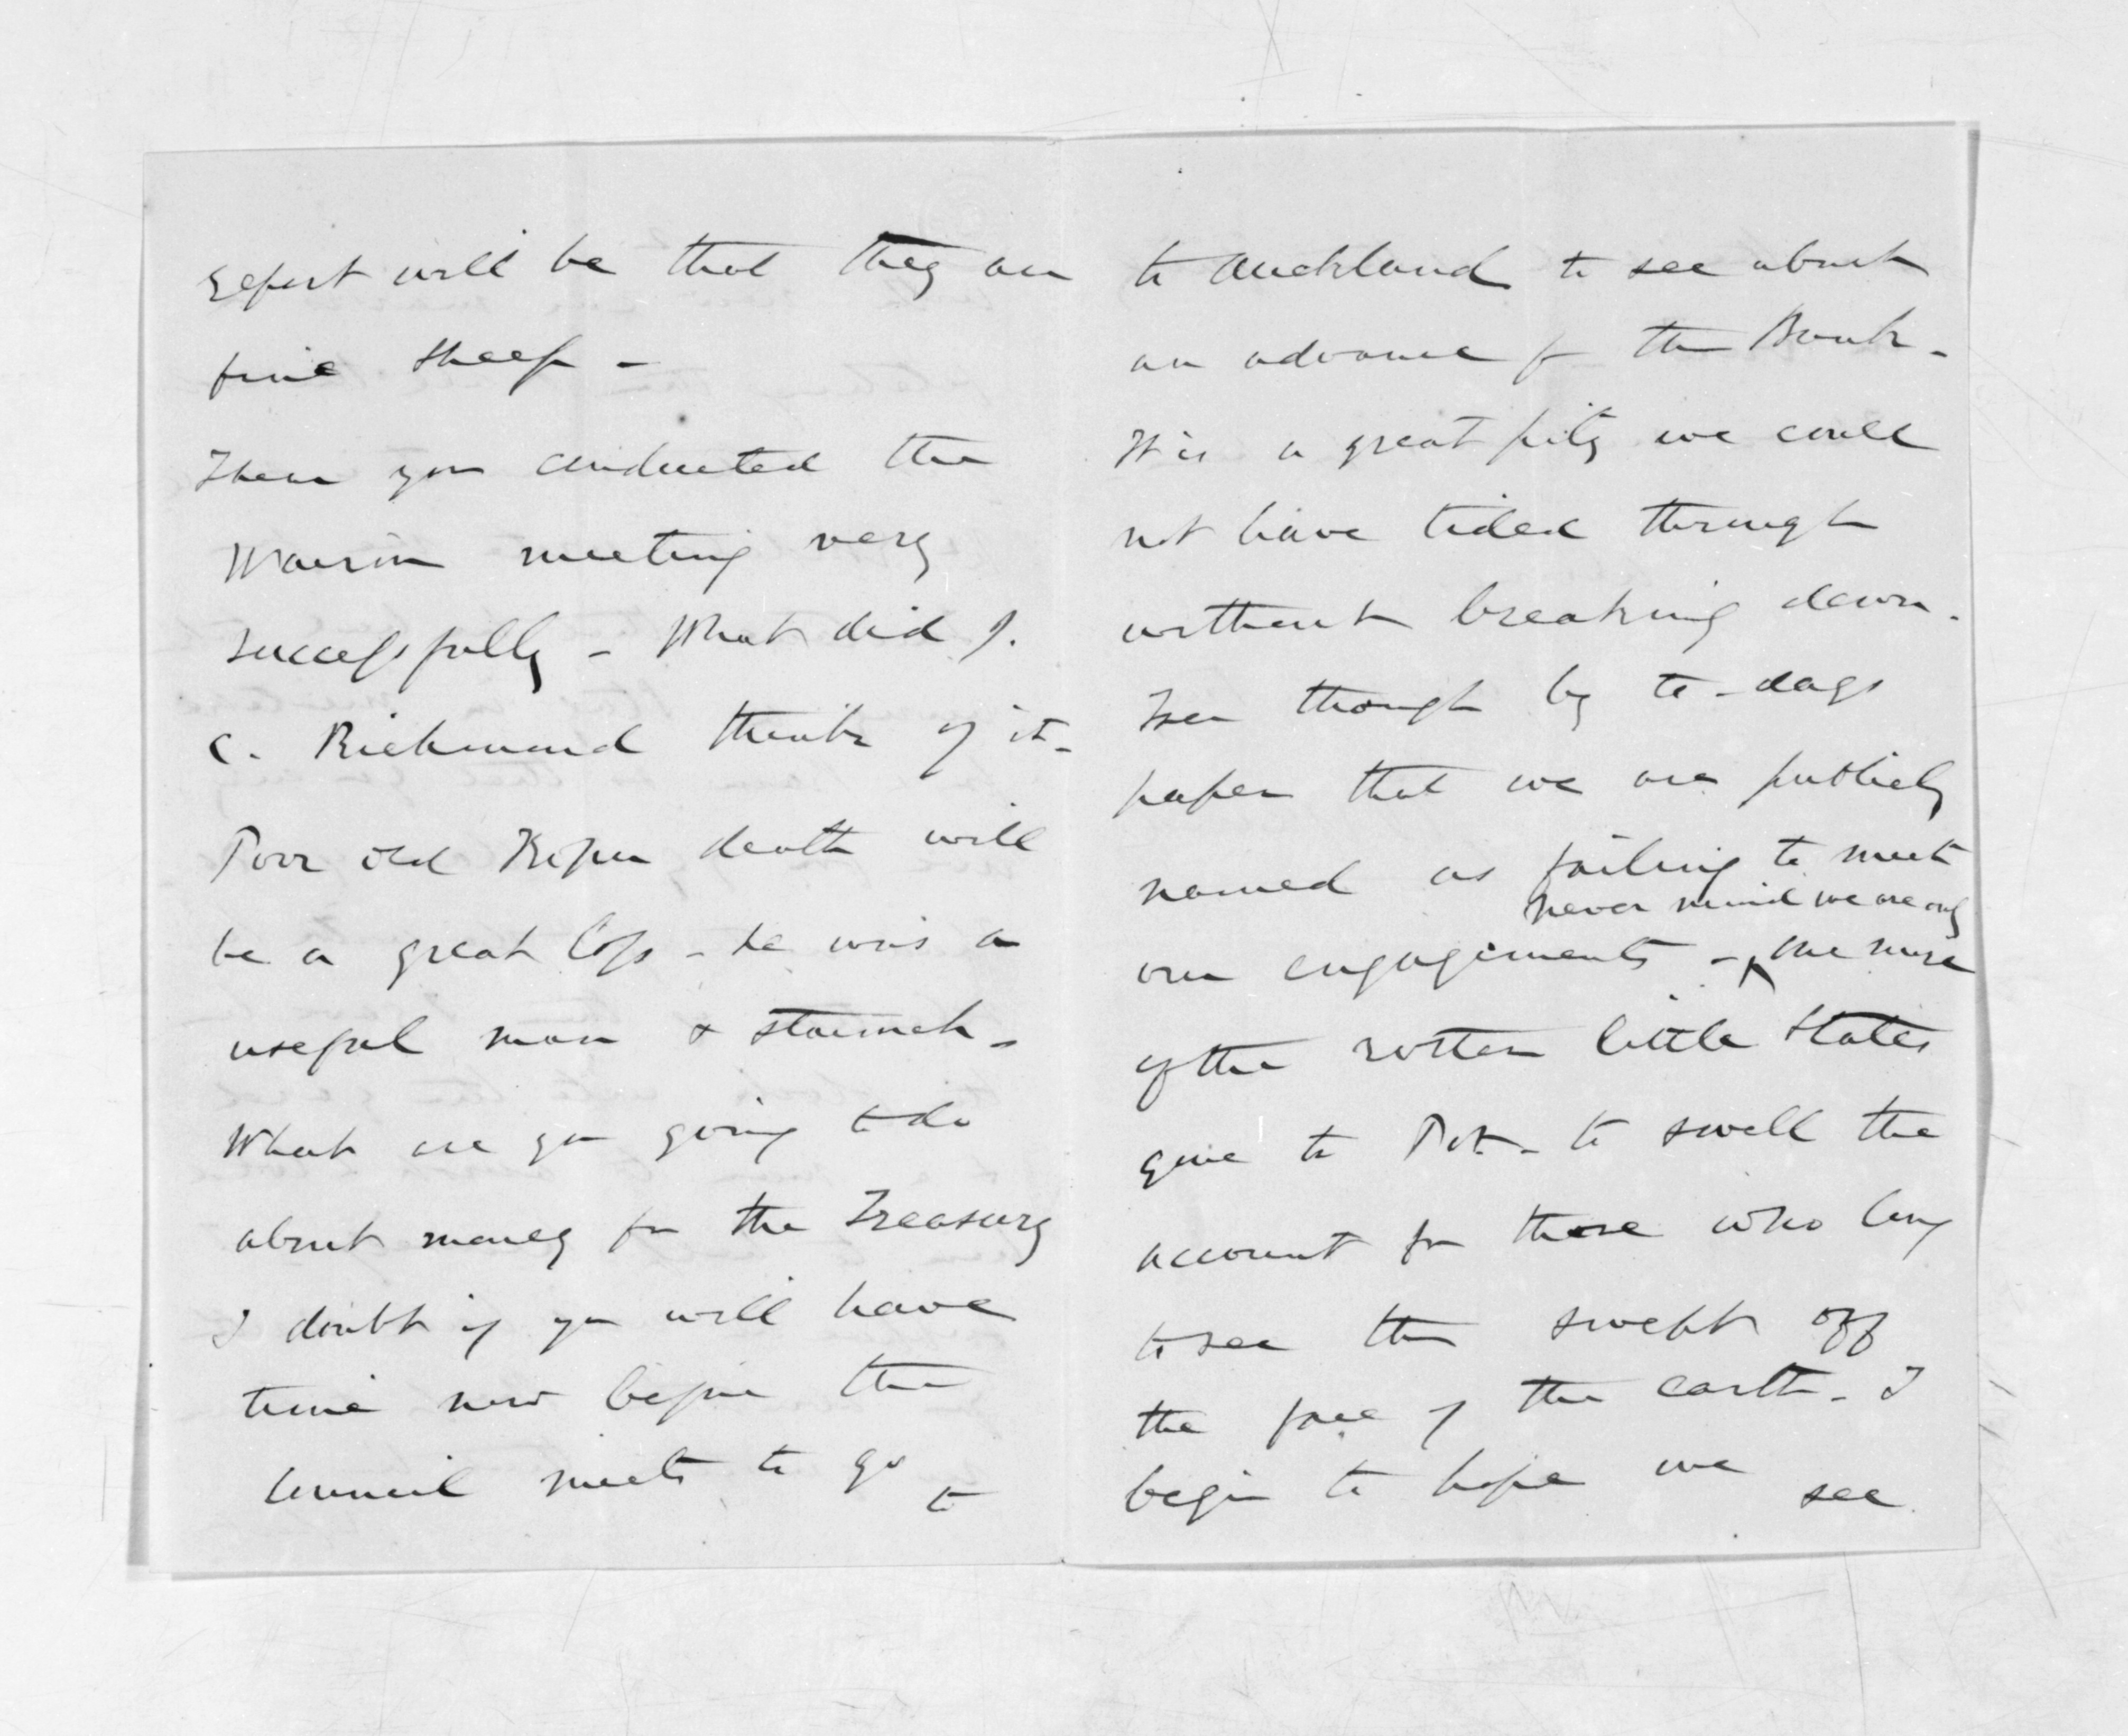 expect will be that they are
fine sheep -
I hear you conducted the
Wairoa meeting very
successfully - What did J.
C. Richmond think of it -
Poor old death will
be a great loss - he was a
useful man & staunch -
What are you going to do
about money for the Treasury
I doubt if you will have
time now before the
Council meets to go to
to Auckland to see about
an advance fr the Bank -
It is a great pity we could
not have tided through
without breaking down.
I see though by to-days
paper that we are publicly
named as failing to meet
our engagements - never mind we are only one more
of the rotten little States
gone to Pot - to swell the
account for those who long
to see them swept off
the face of the earth - I
begin to hope we see